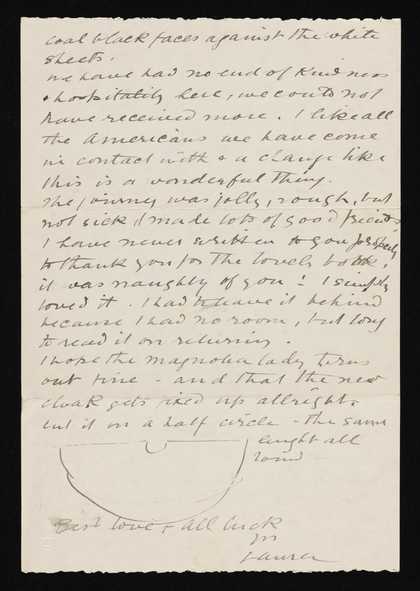 coal black faces against the white
sheets.
We have had no end of kindness
& hospitality here, we could not
have received more. I like all
the Americans we have come
in contact with & a change like
this is a wonderful thing.
The journey was jolly, rough, but
not sick, I made lots of good friends.
I have never written to you properly
to thank you for the lovely book,
it was naughty of you! I simply
loved it. I had to leave it behind
because I had no room, but long
to read it on returning.
I hope the magnolia lady turns
out fine - and that the new
cloak gets fixed up allright.
cut it on a half circle - the same
length all
round
Best love & all luck
yrs
Laura